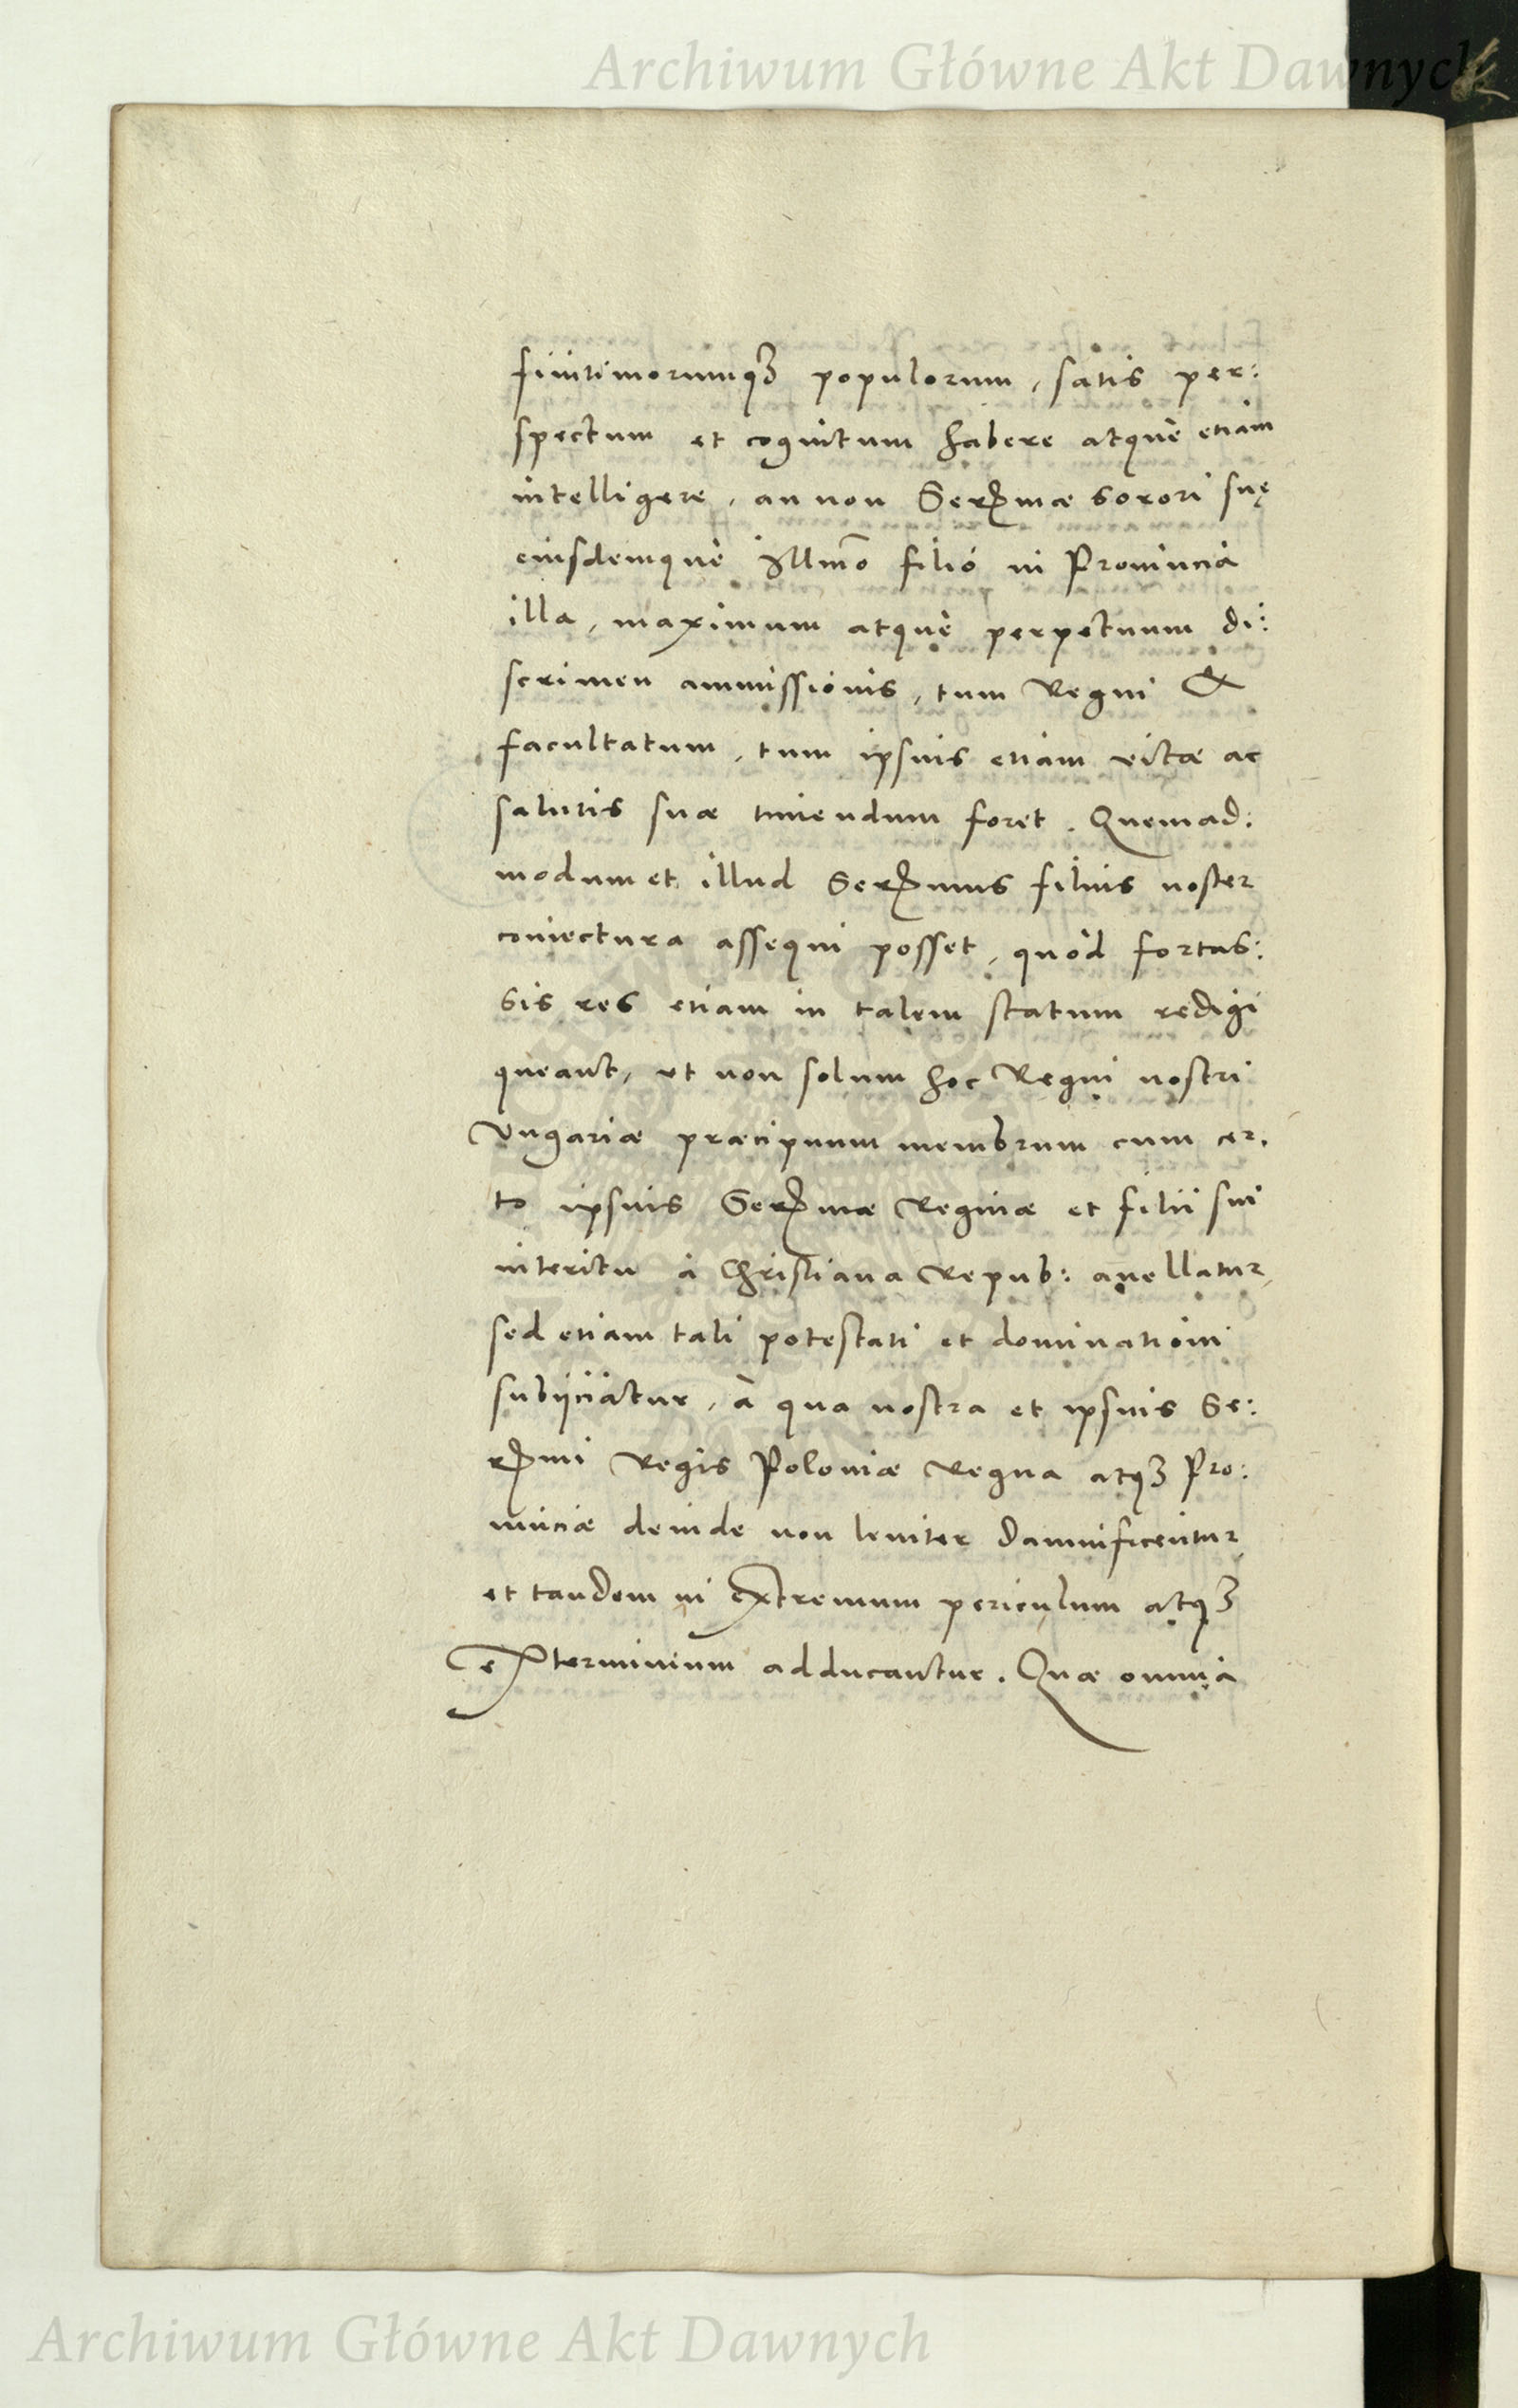 Archiwum Główne Akt Dawnych
finitimorumq3 populorum, satis per:
spectum et cognitum habere atque etiam
intelligere, an non Serꝑmæ sorori suę
eiusdemque Illmo filio in Prouincia
illa, maximum atque perpetuum di:
scrimen ammissionis, tum Regni &
facultatum, tum ipsius etiam vitæ ac
salutis suæ timendum foret. Quemad:
modum et illud Serꝑmus filius noster
coniectura assequi posset, quòd fortas:
sis res etiam in talem statum redigi
queant, ut non solum hoc Regni nostri
Vngariæ præcipuum membrum cum cer.
to ipsius Serꝑmæ Reginæ et filii sui
interitu à Christiana Repub: auellatur,
sed etiam tali potestati et dominationi
subijciatur, à qua nostra et ipsius Se:
rꝑmi Regis Poloniæ Regna atq3 Pro:
uinciæ deinde non leuiter damnificentur,
et tandem in extremum periculum atq3
exterminium adducantur. Quæ omnia
Archiwum Główne Akt Dawnych